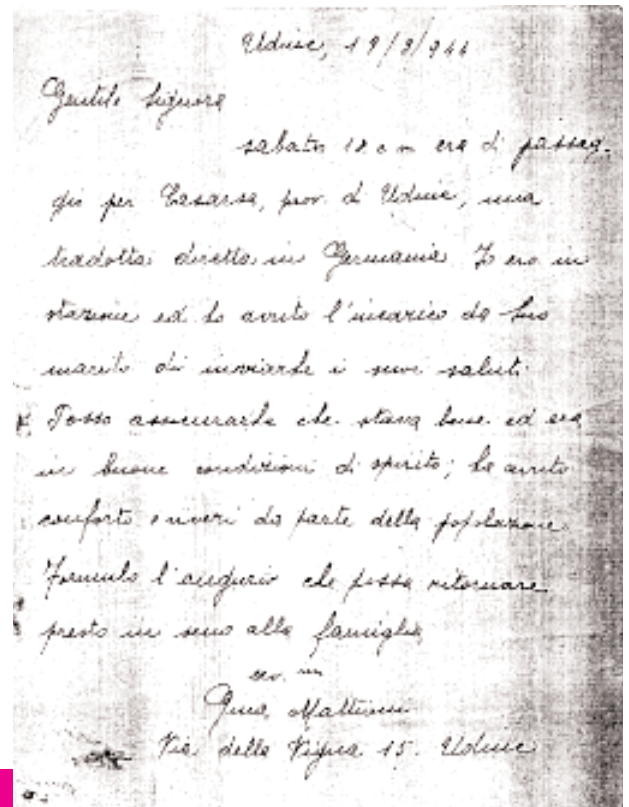 Udine, 19/3/944
Gentile Signora
sabato 18 c m era di passag-
gio per Casarsa, prov. di Udine, una
tradotta diretta in Germania. Io ero in
stazione ed ho avuto l'incarico da suo
marito di inviarle i suoi saluti.
Posso assicurarle che stava bene ed era
in buone condizioni di spirito; ha avuto
conforto e viveri da parte della popolazione
Formulo l'augurio che possa ritornare
presto in seno alla famiglia
Gina Mattioni
Via della Vigna 15. Udine